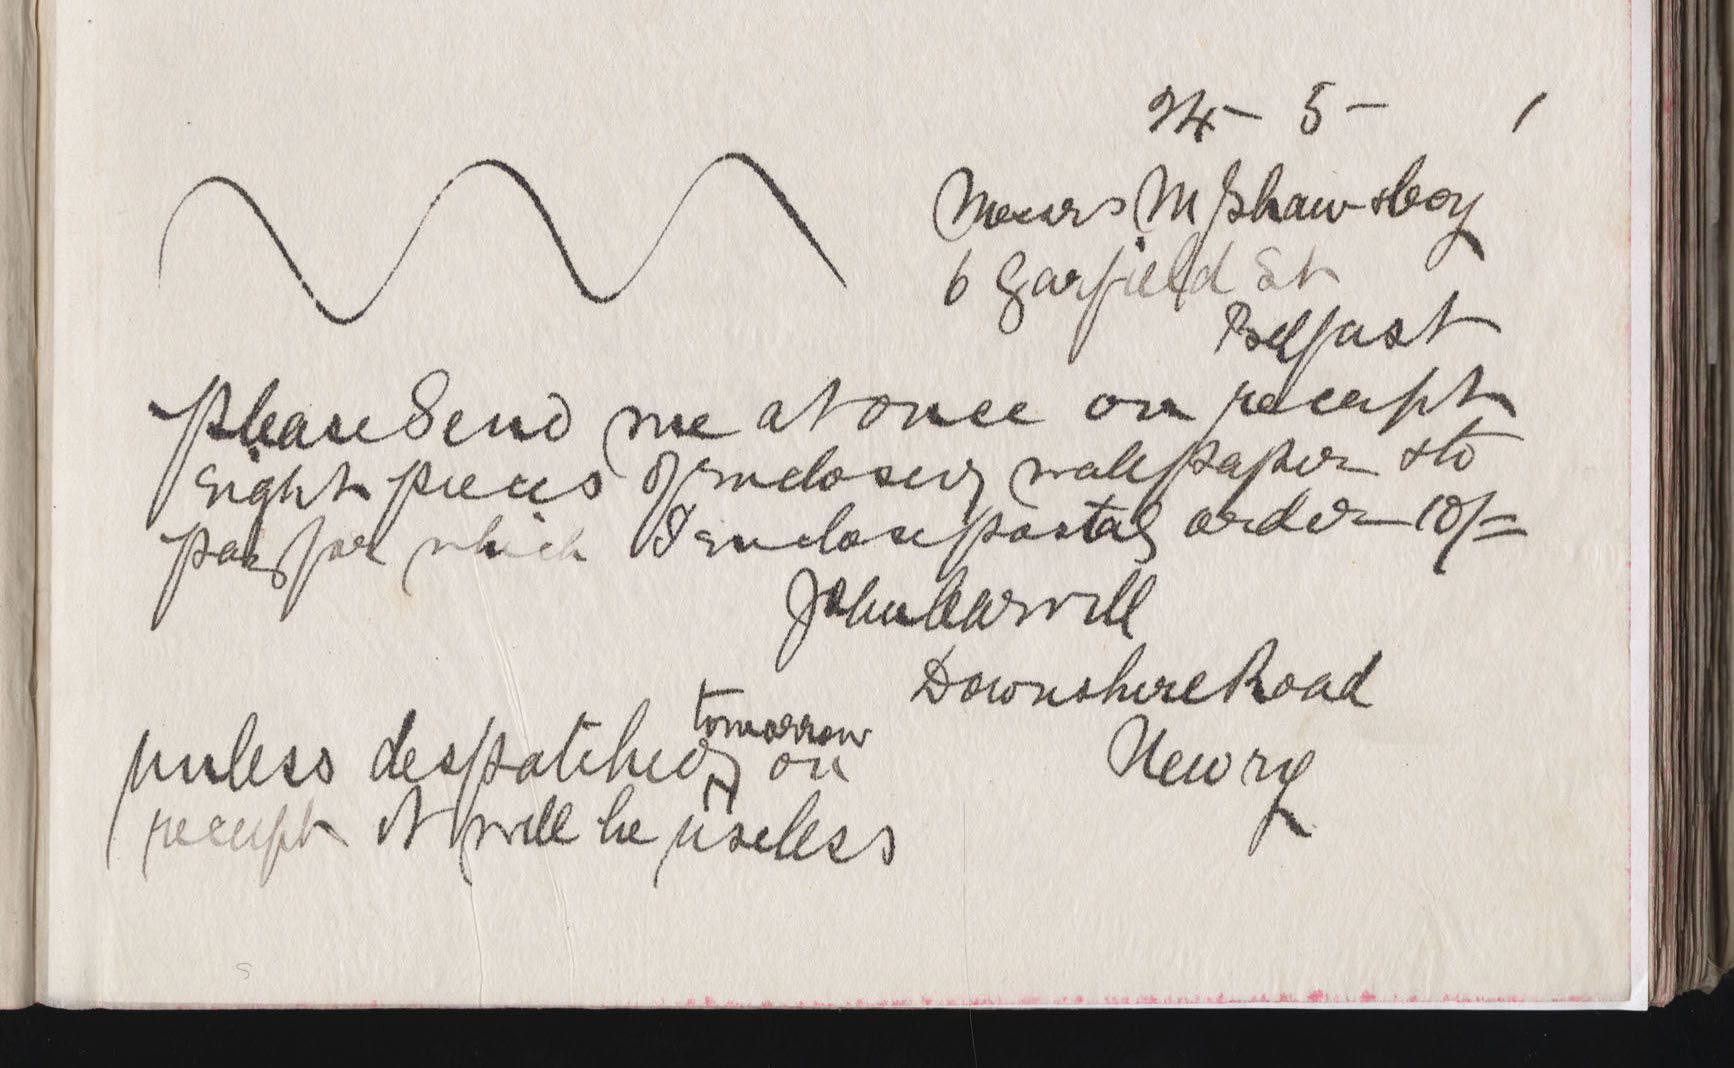 24 - 5 -
Messrs M Shaw & Coy
6 Garfield St
Belfast
please Send me at once on receipt
Eight pieces of Enclosed wallpaper & to
pay for which I Enclose postal order 10/=
John Carvill
Downshire Road
Newry
tomorrow
unless despatched on
receipt it will be useless